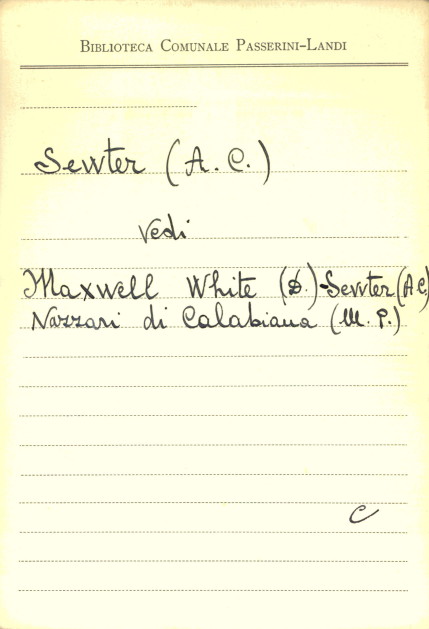 BIBLIOTECA COMUNALE PASSERINI-LANDI
Sewter (A. C.)
Vedi
Maxwell White (D.)-Sewter (A C.)
Nazzari di Calabiana (M. P.)
C